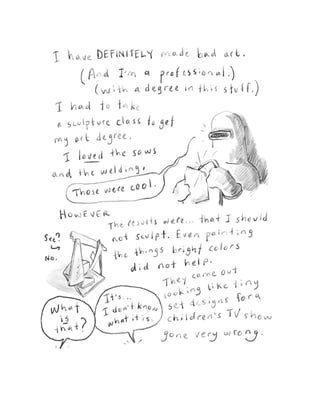 I have DEFINITELY made bad art.
(And I'm a professional.)
(With a degree in this stuff.)
I had to take
a sculpture class to get
my art degree.
I loved the saws
and the welding.
Those were cool.
HOWEVER
The results were... that I should
not sculpt. Even painting
the things bright colors
did not help.
See?
No.
They came out
looking like tiny
set designs for a
children's TV show
gone very wrong.
What
is
that?
It's...
I don't know
what it is.